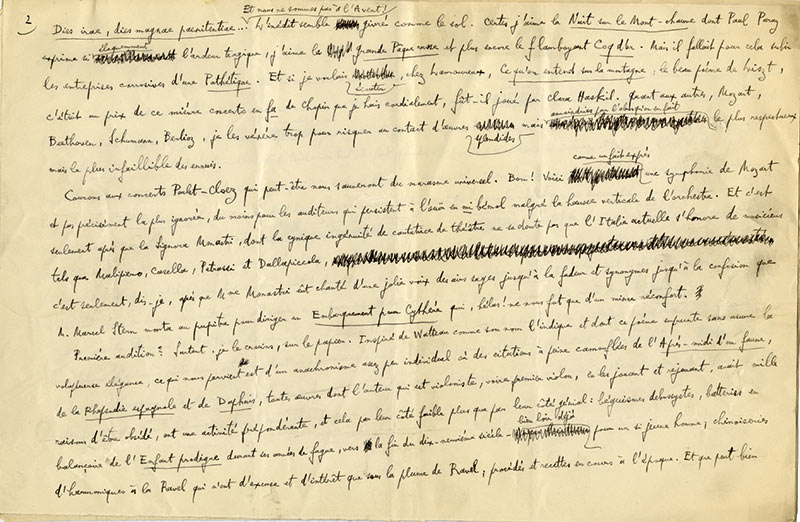 2
Et nous ne sommes pas à l'Avent!
Dies irae, dies magnae paenitentiae... L'inédit semble givré comme le sol. Certes j'aime la Nuit sur le Mont-chauve dont Paul Paray
élégamment
exprime si l'ardeur tragique, j'aime la grande Pâque russe et plus encore le flamboyant Coq d'or. Mais il fallait pour cela subir
les entreprises corrosives d'une Pathétique. Et si je voulais, chez Lamoureux, Ce qu'on entend sur la montagne, le beau poème de Liszt,
écouter
c'était au prix de ce mièvre concerto en fa de Chopin que je hais cordialement, fût-il joué par Clara Haskil. Quant aux autres, Mozart,
Beethoven, Schumann, Berlioz, je les vénère trop pour risquer au contact d'œuvres mais le plus respectueux
splendides
mais le plus infaillible des ennuis.
comme un fait exprès
Courons aux concerts Poulet-Chevy qui peut-être nous sauveront du marasme universel. Bon! Voici une symphonie de Mozart
et pas précisément la plus ignorée, du moins pour les auditeurs qui persistent à l'ouïr en mi bémol malgré la hausse verticale de l'orchestre. Et c'est
seulement après que la signora Monastri, dont la cynique ingénuité de cantatrice de théâtre ne se doute pas que l'Italie actuelle s'honore de musiciens
tels que Malipiero, Casella, Petrassi et Dallapiccola,
c'est seulement, dis-je, après que Mme Monastri eût chanté d'une jolie voix des airs sages jusqu'à la fadeur et synonymes jusqu'à la confusion que
M. Marcel Stern monta au pupitre pour diriger un Embarquement pour Cythère qui, hélas! ne nous fut que d'un mince réconfort.
Première audition? Surtout, je le crains, sur le papier. Inspiré de Watteau comme son nom l'indique et dont ce poème emprunte sans usure la
voluptueuse élégance, ce qui nous parvient est d'un anachronisme assez peu individuel où des citations à peine camouflées de l'Après-midi d'un faune,
de la Rhapsodie espagnole et de Daphnis, toutes œuvres dont l'auteur qui est violoniste, voire premier violon, en les jouant et rejouant, avait mille
raisons d'être obsédé, ont une activité prépondérante, et cela par leur côté faible plus que par leur côté génial: langueurs debussystes,
bien loin déjà
balançoire de l'Enfant prodigue durant ses années de fugue, vers la fin du dix-neuvième siècle - pour un si jeune homme; chinoiseries
d'harmoniques à la Ravel qui n'ont d'excuse et d'intérêt que sous la plume de Ravel; procédés et recettes en cours à l'époque. Et que peut bien